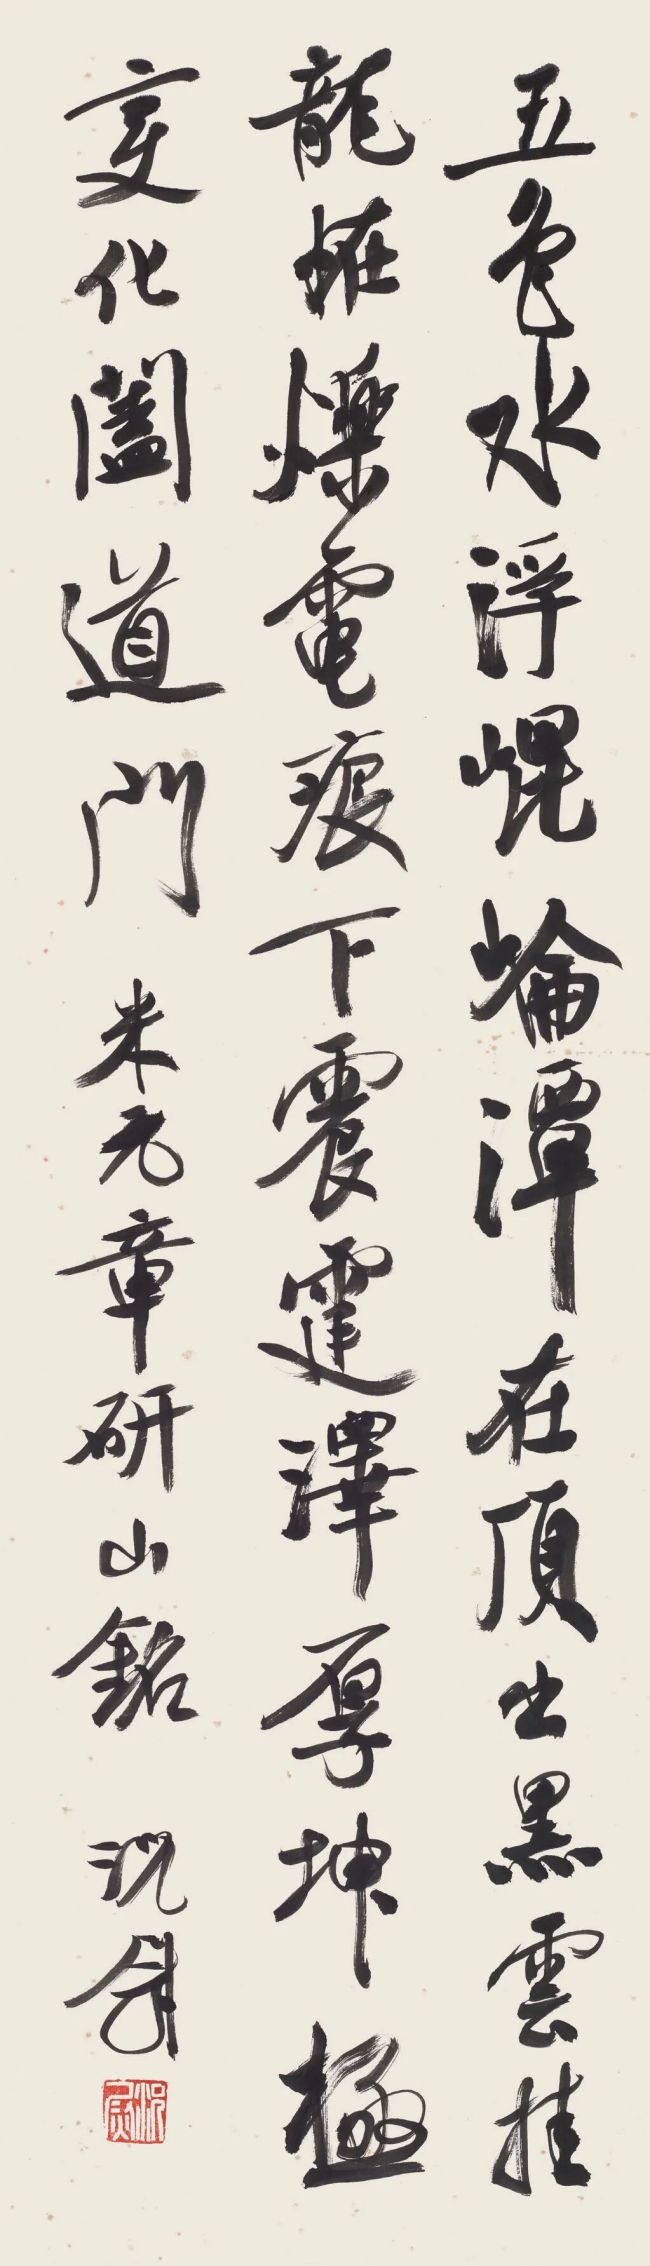 五色水浮崐崘潭在頂出黑雲挂
龍怪爍電痕下震霆澤厚坤極
變化闔道門 米元章研山銘 沈尉